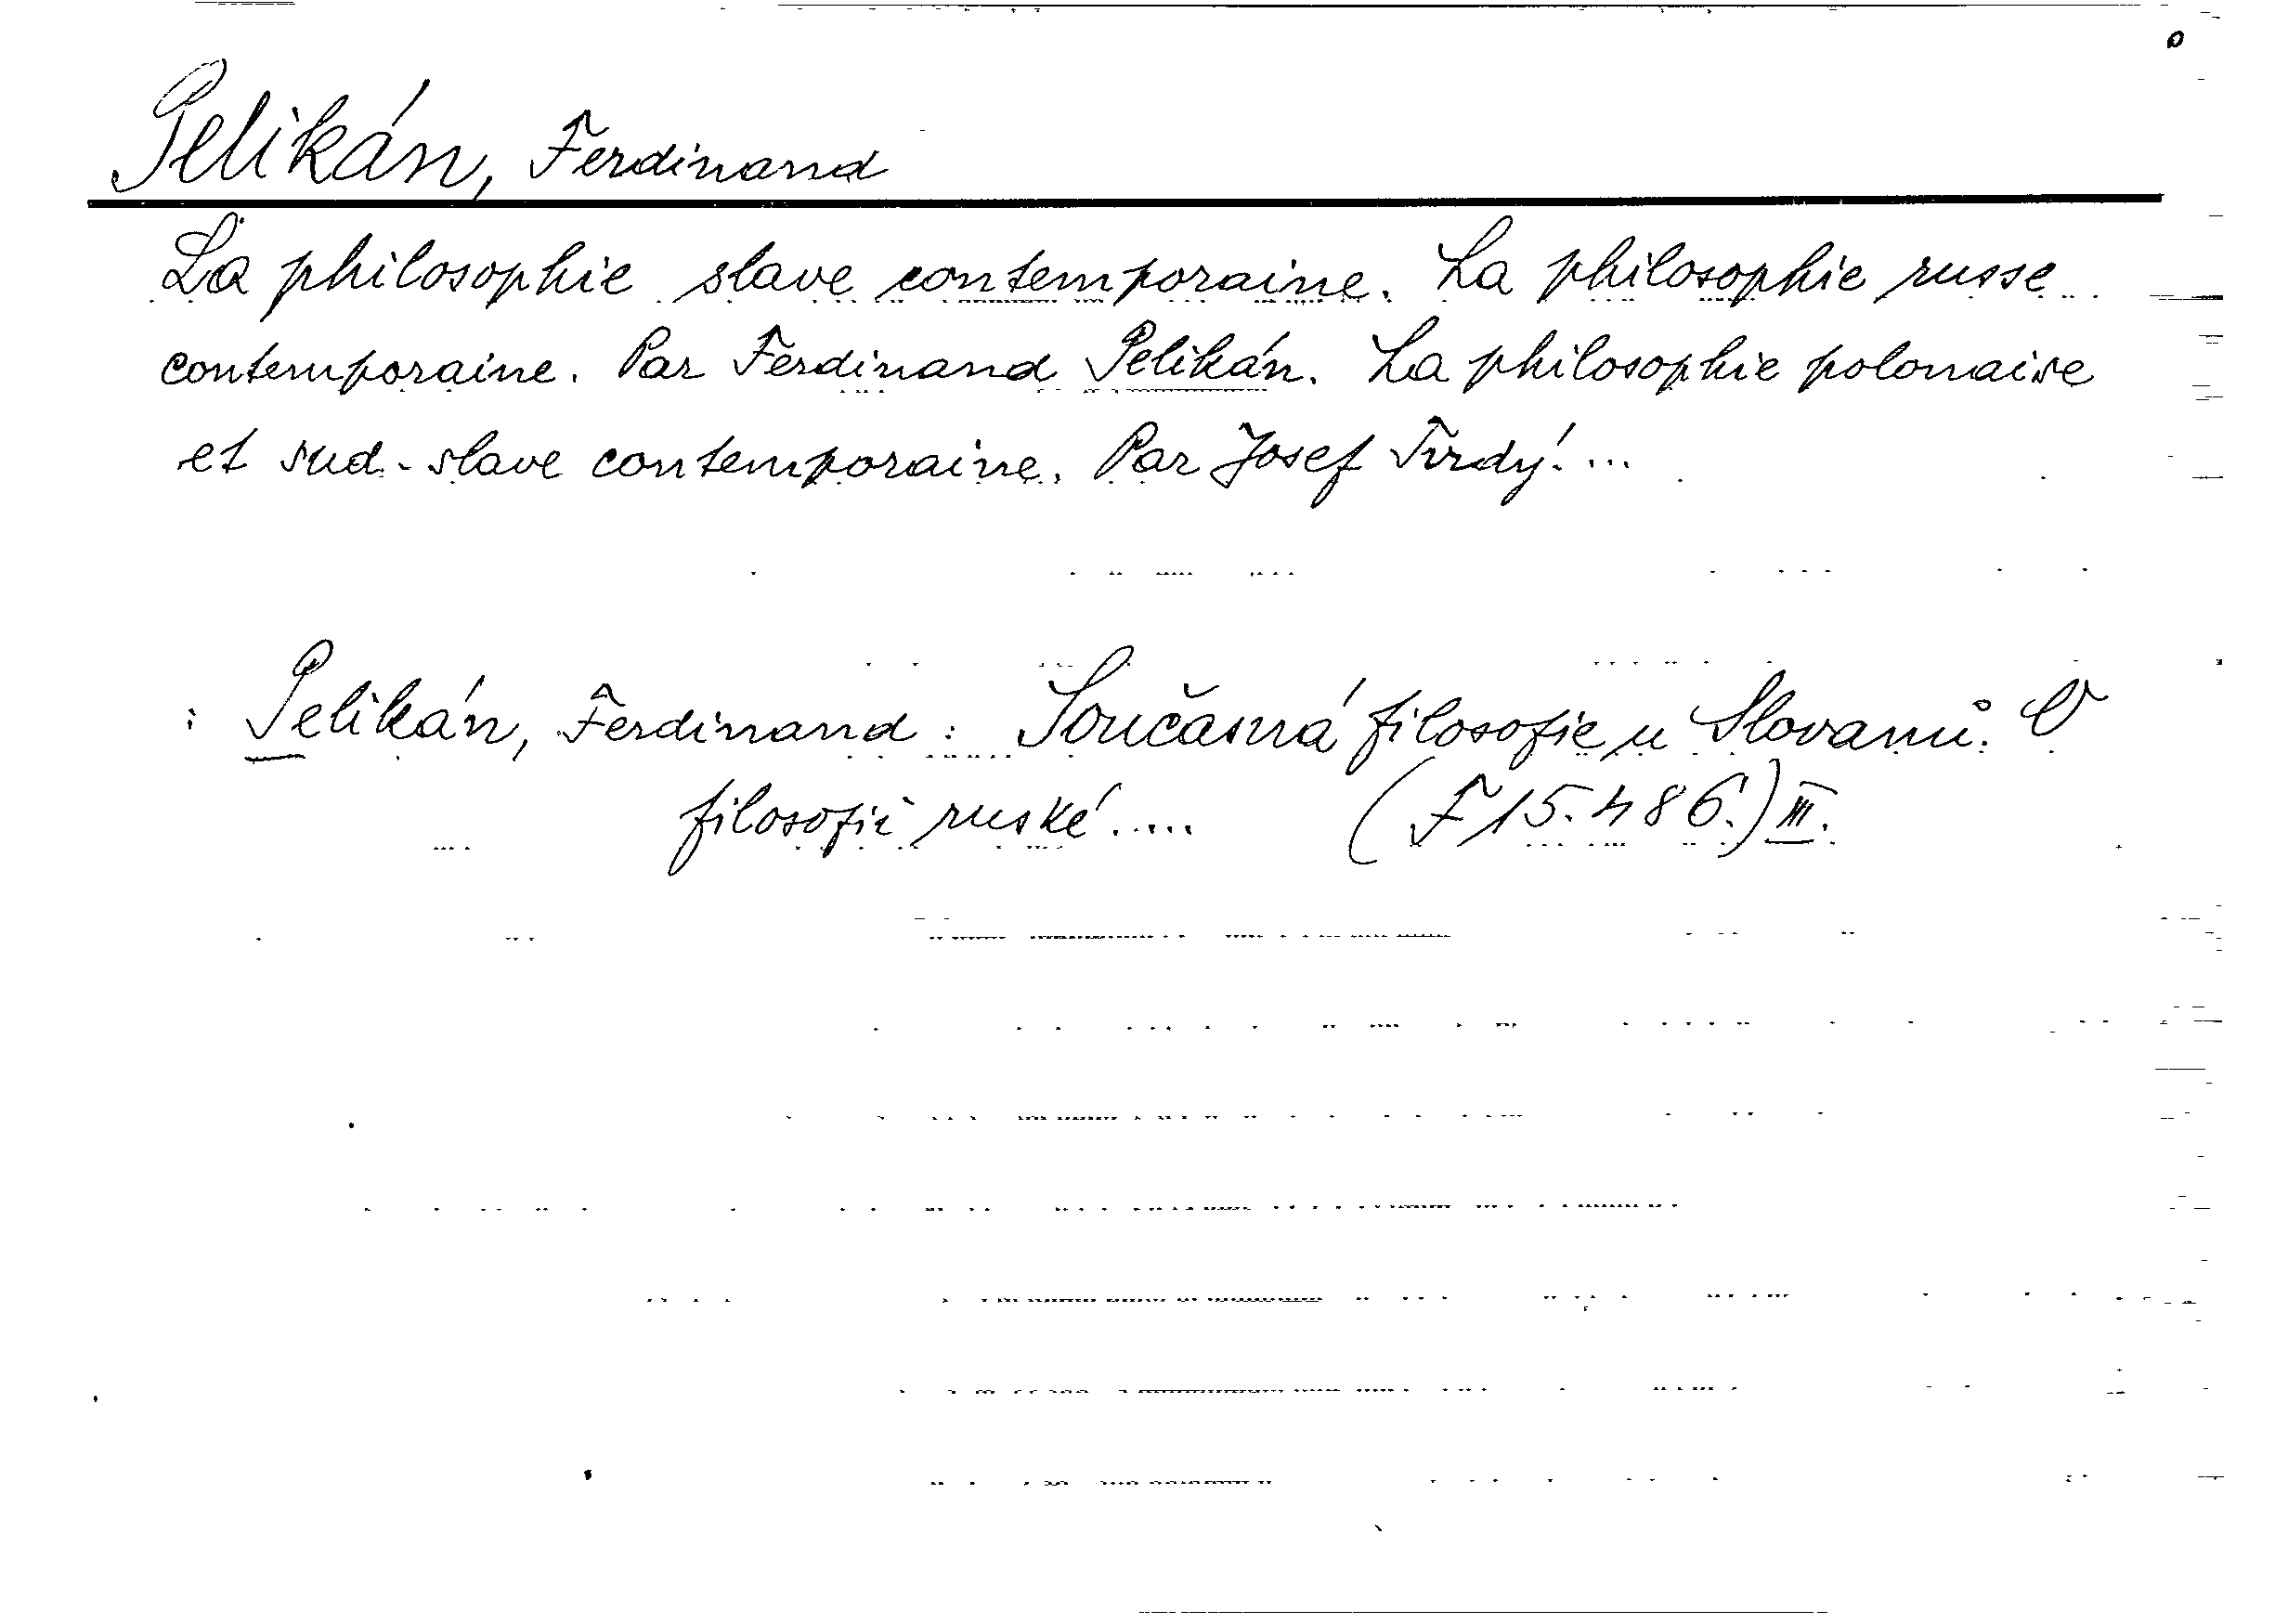 Pelikán, Ferdinand
La philosophie slave contemporaine. La philosophie russe
contemporaine. Par Ferdinand Pelikán. La philosophie polonaise
et sud-slave contemporaine. Par Josef Tvrdý. ...
: Pelikán, Ferdinand: Současná filosofie u Slovanů. O
filosofii ruské.....  (F 15.486.) III.